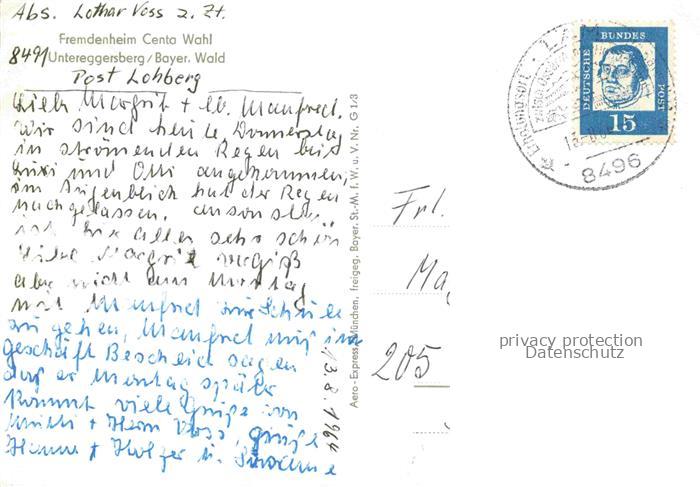 Abs. Lothar Voss z. Zt.
Fremdenheim Centa Wahl
8491 Untereggersberg/Bayer. Wald
Post Lohberg
Liebe Margrit + lb. Manfred.
Wir sind heute, Donnerstag
in strömenden Regen bei
und Otti angekommen,
im hat der Regen
nachgelassen. ansonsten
ist hier alles sehr schön
Liebe Margrit vergiß
aber nicht am Montag
mit Manfred zur Schule
zu gehen, Manfred muß im
Geschäft Bescheid sagen
daß er Montag später
kommt viele Grüße von
Mutti + Herrn Voss, grüße
Hanne + Holger u. Susanne
13.8.1964
Aero-Express München, freigeg. Bayer. St.-M. f. W. u. V. Nr. G 1/3
DEUTSCHE BUNDES POST
15
8496
Frl.
Ma
205
privacy protection
Datenschutz